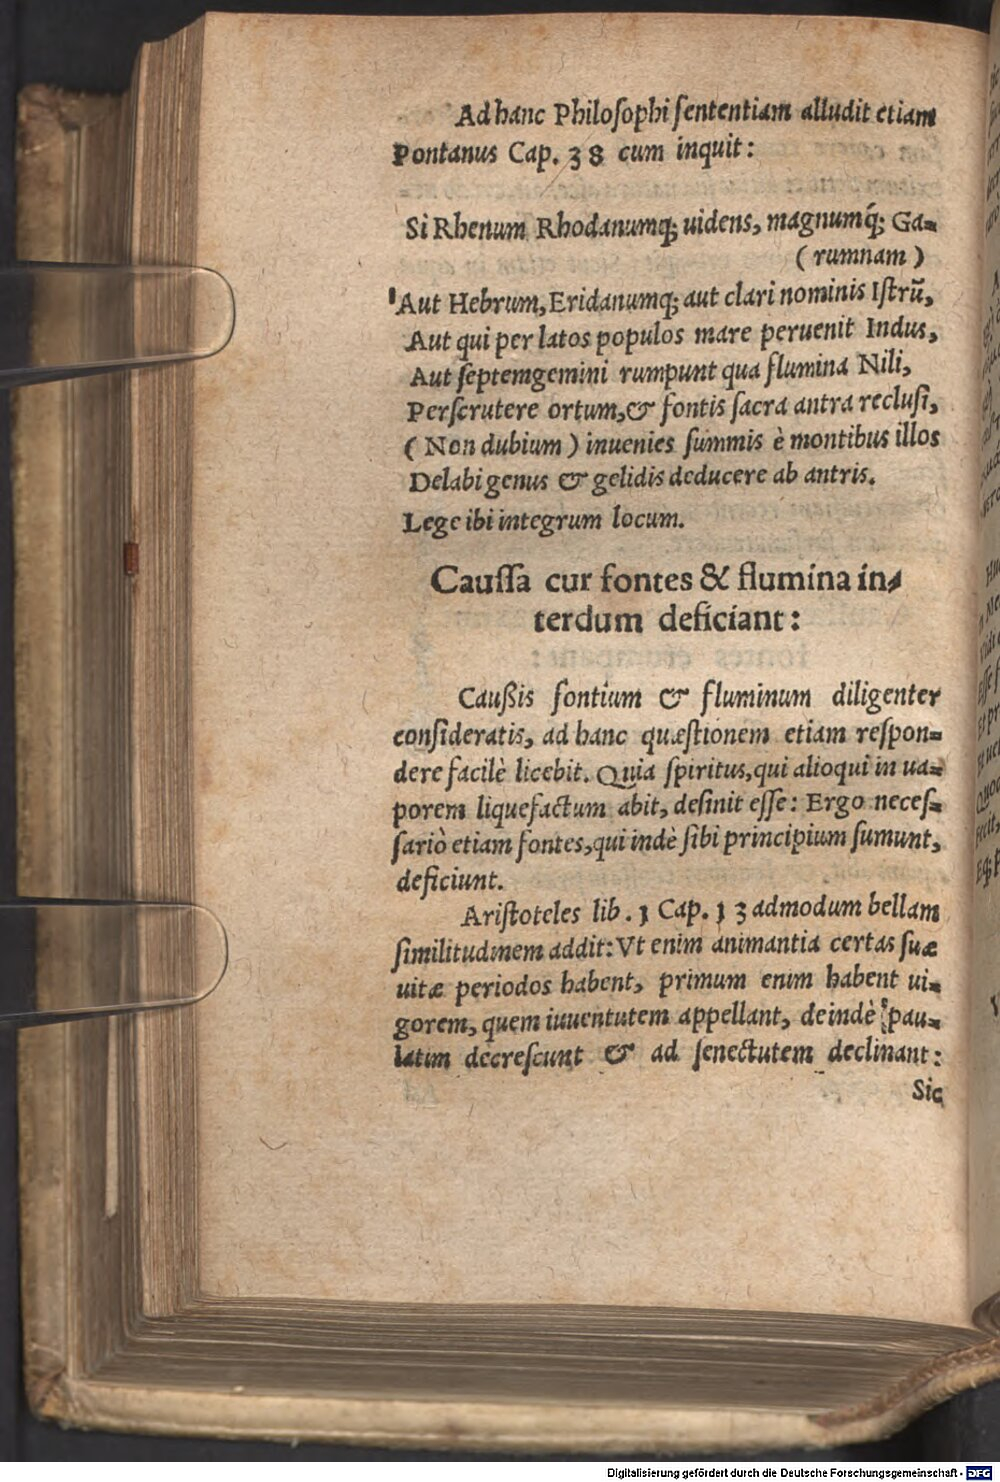 Ad hanc Philoſophi ſententiam alludit etiam
Pontanus Cap. 38 cum inquit:
Si Rhenum Rhodanumq; uidens, magnumq́; Ga=
( rumnam )
Aut Hebrum, Eridanumq; aut clari nominis Iſtrũ,
Aut qui per latos populos mare peruenit Indus,
Aut ſeptemgemini rumpunt qua flumina Nili,
Perſcrutere ortum, & fontis ſacra antra recluſi,
( Non dubium ) inuenies ſummis è montibus illos
Delabi genus & gelidis deducere ab antris.
Lege ibi integrum locum.
Cauſſa cur fontes & flumina in-
terdum deficiant:
Cauſsis fontium & fluminum diligenter
conſideratis, ad hanc quæſtionem etiam reſpon=
dere facilè licebit. Quia ſpiritus, qui alioqui in ua=
porem liquefactum abit, deſinit eſſe: Ergo neceſ=
ſariò etiam fontes, qui indè ſibi principium ſumunt,
deficiunt.
Ariſtoteles lib. 1 Cap. 13 admodum bellam
ſimilitudinem addit: Vt enim animantia certas ſuæ
uitæ periodos habent, primum enim habent ui=
gorem, quem iuuentutem appellant, deindè pau=
latim decreſcunt & ad ſenectutem declinant:
Sic
Digitalisierung gefördert durch die Deutsche Forschungsgemeinschaft - DFG